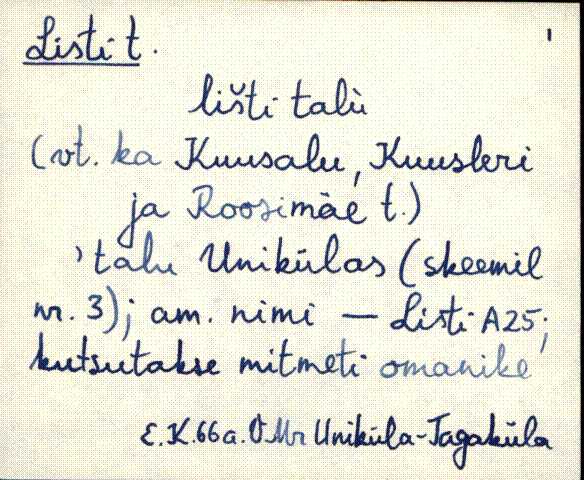 Listi t. 1
lišti talù
(vt. ka Kuusalu, Kuusleri
ja Roosimäe t.)
'talu Unikülas (skeemil
nr. 3); am. nimi — Listi A25;
kutsutakse mitmeti omanike'
E.K. 66a. VMr Uniküla-Tagaküla